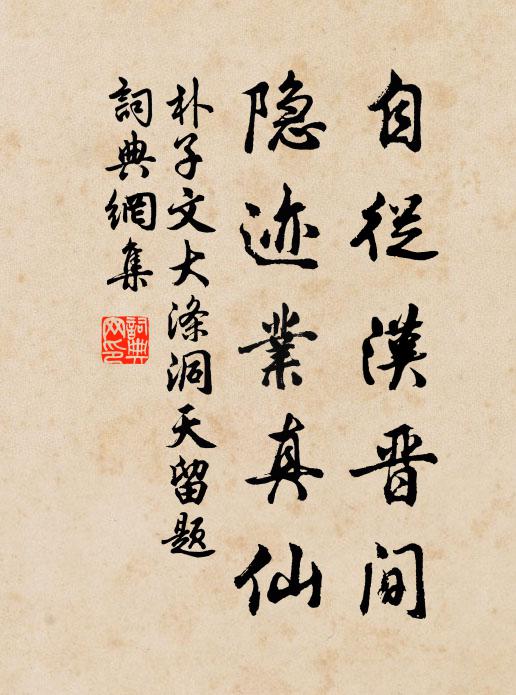 自從漢晋间
隐迹業真仙
朴子文大滌洞天留题
詞典網集
詞典網印